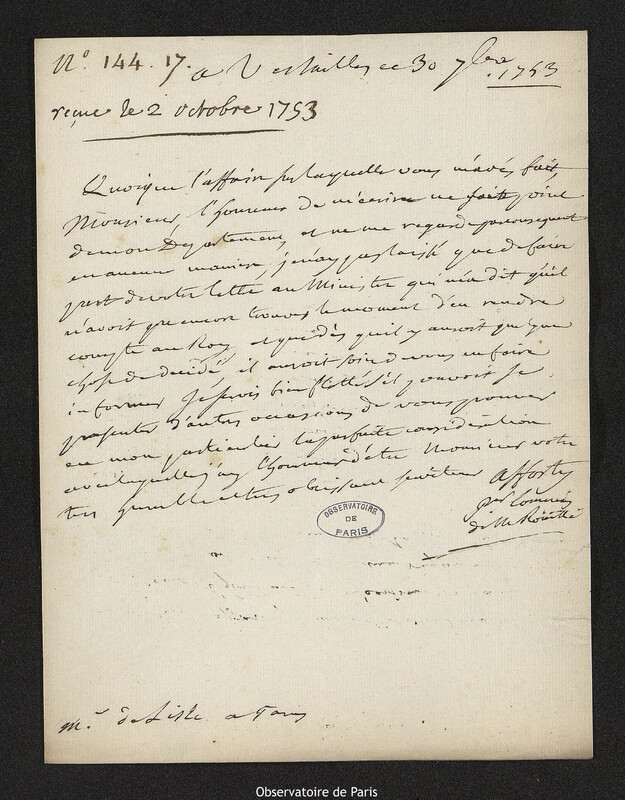 N.º 144. 17. a Versailles ce 30 7bre 1753
reçue le 2 octobre 1753
Quoique l'affaire sur laquelle vous m'avés fait,
Monsieur, l'honneur de m'écrire ne soit point
de mon Département, et ne me regarde par consequent
en aucune maniere, je n'ay pas laissé que de faire
part de votre lettre au Ministre qui m'a dit qu'il
n'avoit pas encore trouvé le moment d'en rendre
compte au Roy, et que dès qu'il y auroit quelque
chose de decidé, il auroit soin de vous en faire
informer. Je serois bien flatté s'il pouvoit se
presenter d'autres occasions de vous prouver
en mon particulier la parfaite consideration
avec laquelle j'ay l'honneur d'être Monsieur votre
très humble et très obeissant serviteur
OBSERVATOIRE
DE
PARIS
mr. de Lisle a Paris
Observatoire de Paris